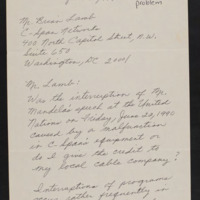 problem
Mr. Brian Lamb
C-Span Network
400 North Capitol Street, N.W.
Suite 650
Washington, DC 20001
Mr. Lamb:
Was the interruption of Mr.
Mandela's speech at the United
Nations on Friday, June 22, 1990
caused by a malfunction
in C-Span's equipment or
do I give the credit to
my local cable company?
Interruptions of programs
rather frequently in